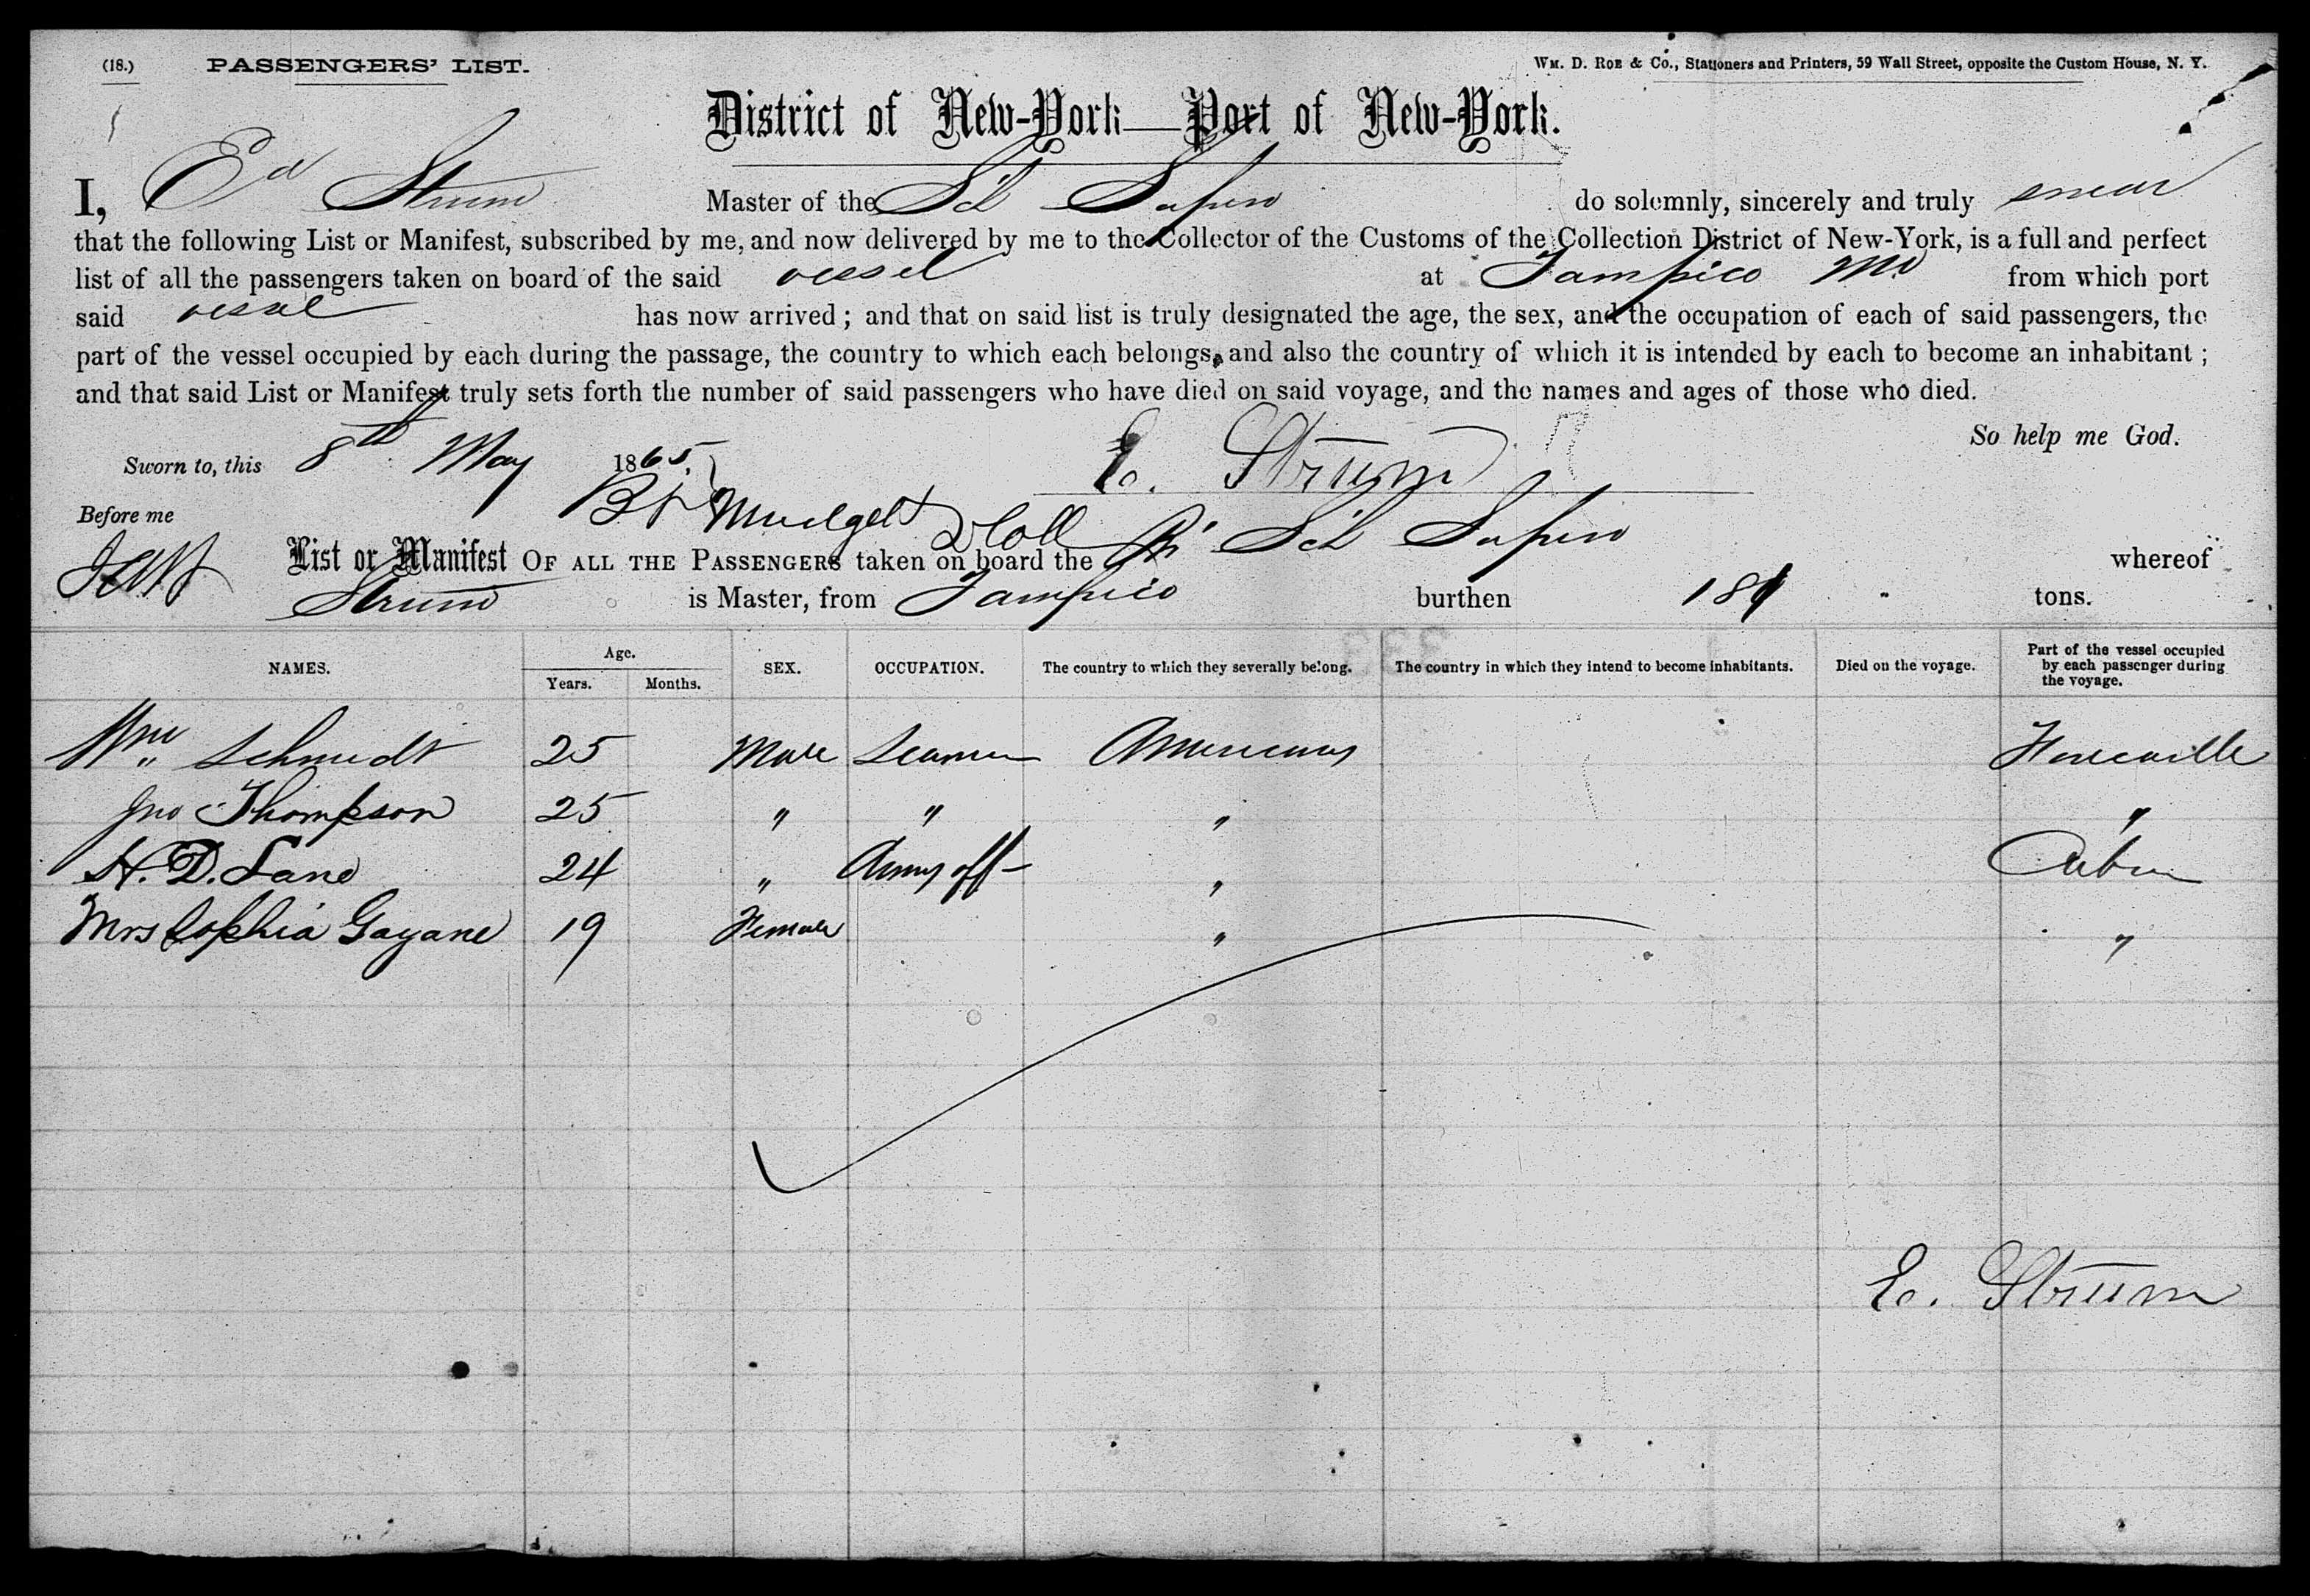 (18.) PASSENGERS' LIST. Wm. D. Roe & Co., Stationers and Printers, 59 Wall Street, opposite the Custom House, N. Y.
District of New-York—Port of New-York.
I, Ed Strum Master of the Sch do solemnly, sincerely and truly swear
that the following List or Manifest, subscribed by me, and now delivered by me to the Collector of the Customs of the Collection District of New-York, is a full and perfect
list of all the passengers taken on board of the said vessel at Tampico from which port
said vessel has now arrived; and that on said list is truly designated the age, the sex, and the occupation of each of said passengers, the
part of the vessel occupied by each during the passage, the country to which each belongs, and also the country of which it is intended by each to become an inhabitant;
and that said List or Manifest truly sets forth the number of said passengers who have died on said voyage, and the names and ages of those who died.
So help me God.
Sworn to, this 8th May 1865. E. Strum
Before me
List or Manifest OF ALL THE PASSENGERS taken on board the Sch whereof
Strum is Master, from Tampico burthen tons.
NAMES. Age. Years. Months. SEX. OCCUPATION. The country to which they severally belong. The country in which they intend to become inhabitants. Died on the voyage. Part of the vessel occupied by each passenger during the voyage.
Wm Schmidt 25 Male Seaman Americans
Jno Thompson 25 " " " "
H. D. Lane 24 " Army off "
Mrs Sophia Gayane 19 Female " "
E. Strum